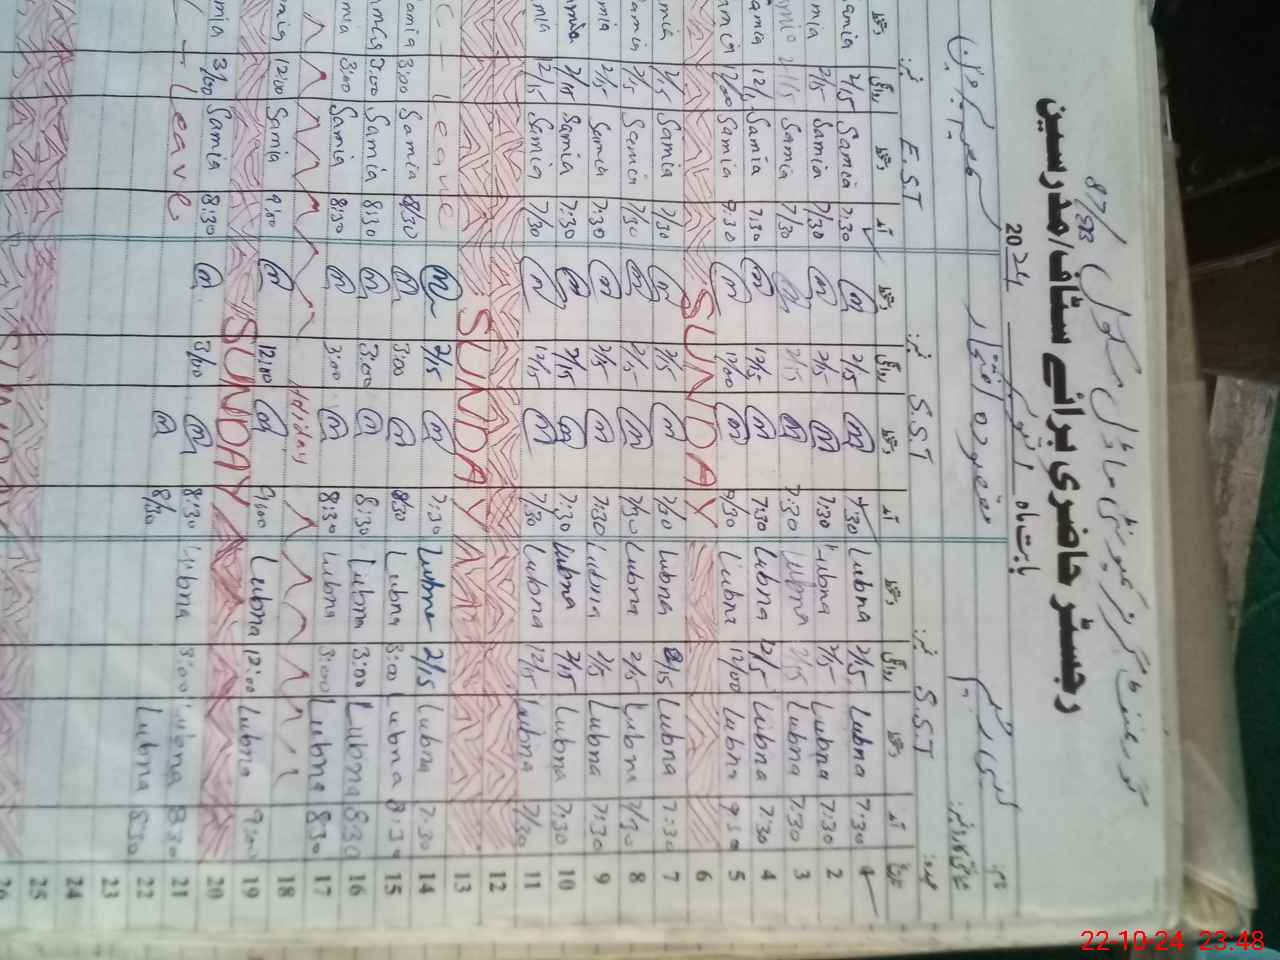 گورنمنٹ گرلز کمیونٹی ماڈل سکول 87/
رجسٹر حاضری برائے سٹاف/مدرسین
بابت ماہ اکتوبر 2024
S.S.T S.S.T E.S.T
تاریخ آمد دستخط روانگی دستخط آمد دستخط روانگی دستخط آمد دستخط روانگی دستخط
1 7:30 Lubna 2/15 Lubna 7:30 m 2/15 m 7:30 Samia 2/15 Samia
2 7:30 Lubna 2/15 Lubna 7:30 m 2/15 m 7/30 Samia 2/15 Samia
3 7:30 Lubna 2/15 Lubna 7:30 m 2/15 m 7/30 Samia 2/15 Samia
4 7:30 Lubna 12/15 Lubna 7:30 m 12/15 m 7:30 Samia Samia
5 9:30 Lubna 12/00 Lubna 9/30 m 12/00 m 9:30 Samia 12/00 Samia
6 SUNDAY
7 7:30 Lubna 2/15 Lubna 7/30 m 2/15 m 7/30 Samia 2/15 Samia
8 7/30 Lubna 2/15 Lubna 7/30 m 2/15 m 7/30 Samia 2/15 Samia
9 7:30 Lubna 2/15 Lubna 7:30 m 2/15 m 7:30 Samia 2/15 Samia
10 7:30 Lubna 2/15 Lubna 7:30 m 2/15 m 7:30 Samia 2/15 Samia
11 7/30 Lubna 12/15 Lubna 7/30 m 12/15 m 7/30 Samia 12/15 Samia
12
13 SUNDAY
14 7:30 Lubna 2/15 Lubna 7:30 m 2/15 m C - leave
15 8:30 Lubna 3:00 Lubna 8/30 m 3:00 m 8/30 Samia 3:00 Samia
16 8:30 Lubna 3:00 Lubna 8:30 m 3:00 m 8:30 Samia 3:00 Samia
17 8:30 Lubna 3:00 Lubna 8:30 m 3:00 m 8:30 Samia 3:00 Samia
18
19 9:00 Lubna 12:00 Lubna 9:00 m 12:00 m 9:00 Samia 12:00 Samia
20 SUNDAY
21 8:30 Lubna 3:00 Lubna 8:30 m 3/00 m 8:30 Samia 3/00 Samia
22 8:30 Lubna 8/30 m leave
23
24
25
26
22-10-24 23:48